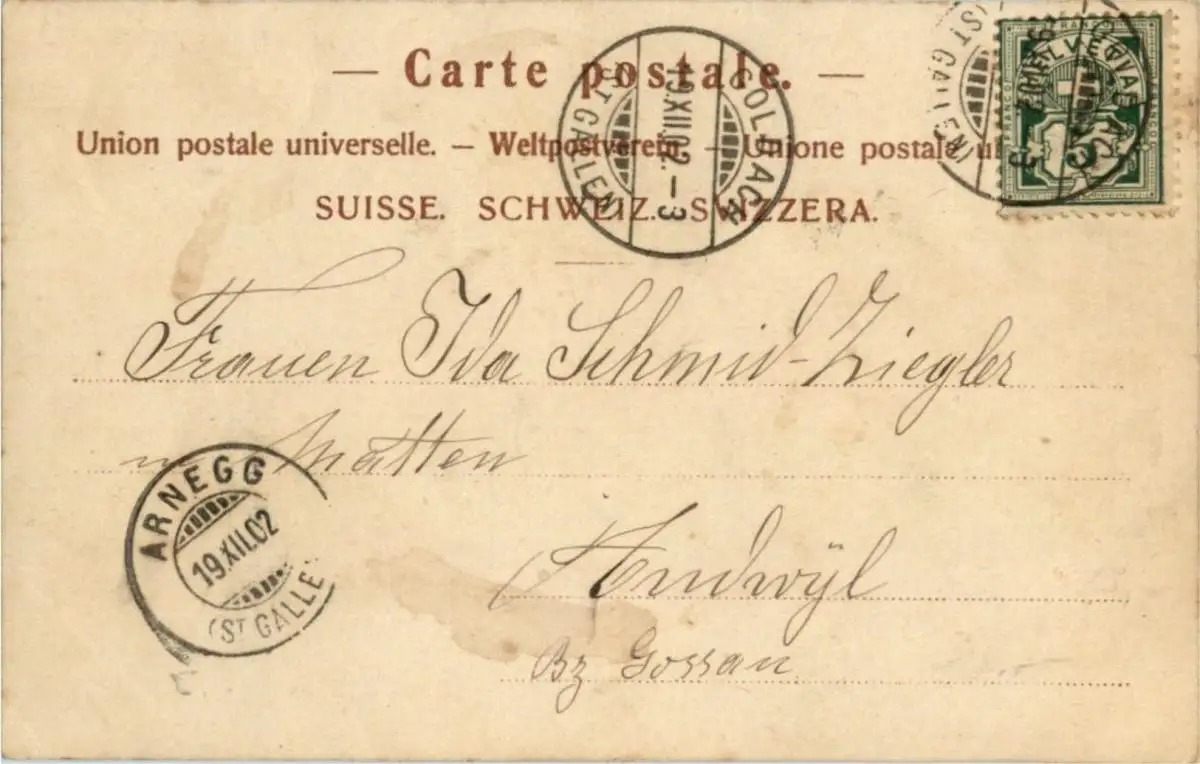 — Carte postale. —
Union postale universelle. — Weltpostverein. — Unione postale
SUISSE. SCHWEIZ. SVIZZERA.
GOLDACH
XII.02.-3
(ST GALLEN)
(ST GALLEN)
HELVETIA
5
Frauen Ida Schmid-Ziegler
Matten
Andwÿl
Bz Gossau
ARNEGG
19.XII.02
(ST GALLE